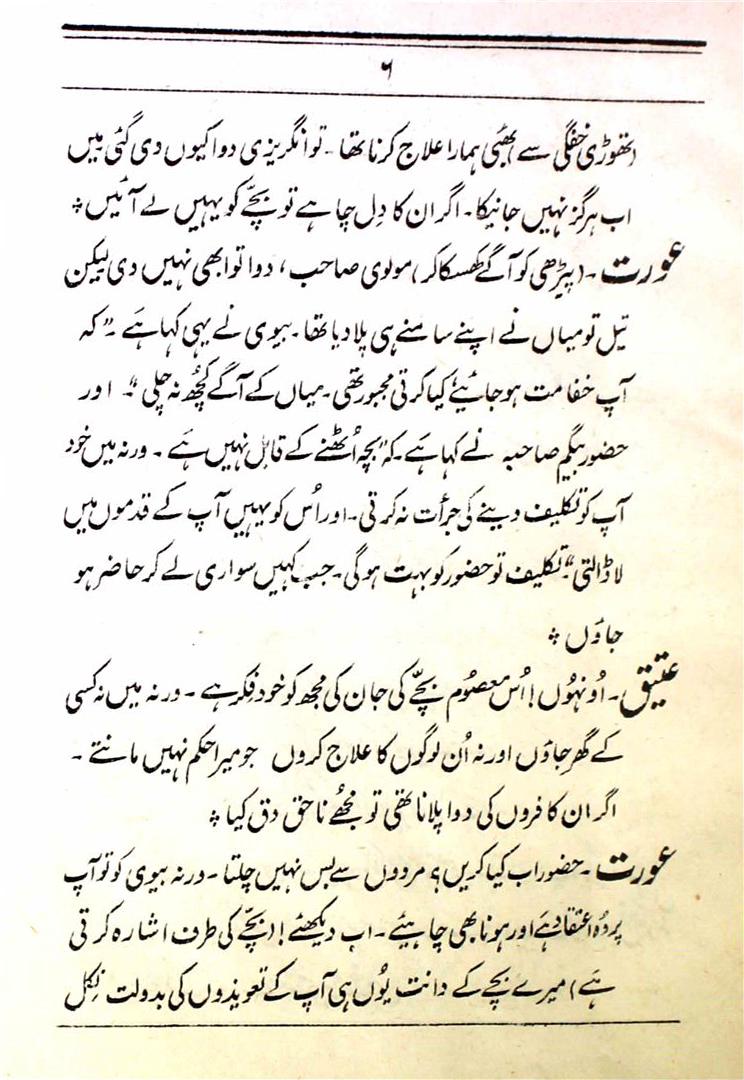 ۶
(تھوڑی خفگی سے) بھئی ہمارا علاج کرنا تھا۔ تو انگریزی دوا کیوں دی گئی ہیں
اب ہرگز نہیں جانیکا۔ اگر ان کا دِل چاہے تو بچّے کو یہیں لے آئیں ٭
عورت۔ (پیڑھی کو آگے کھسکا کر) مولوی صاحب، دوا تو ابھی نہیں دی لیکن
تیل تو میاں نے اپنے سامنے ہی پلا دیا تھا۔ بیوی نے یہی کہا ہے۔ “کہ
آپ خفا مت ہو جائیئے کیا کرتی مجبور تھی۔ میاں کے آگے کُچھ نہ چلی”۔ اور
حضور بیگم صاحبہ نے کہا ہے۔ کہ “بچہ اُٹھنے کے قابل نہیں ہے۔ ورنہ میں خود
آپ کو تکلیف دینے کی جرأت نہ کرتی۔ اور اُس کو یہیں آپ کے قدموں میں
لا ڈالتی”۔ تکلیف تو حضور کو بہت ہوگی۔ جب کہیں سواری لے کر حاضر ہو
جاؤں ٭
عتیق۔ اُونہوُں! اُس معصوُم بچّے کی جان کی مجھ کو خود فِکر ہے۔ ورنہ میں نہ کسی
کے گھر جاؤں اور نہ اُن لوگوں کا علاج کروں جو میرا حکم نہیں مانتے۔
اگر ان کافروں کی دوا پلانا تھی تو مجھُے ناحق دق کیا ٭
عورت۔ حضور اب کیا کریں؟ مردوں سے بس نہیں چلتا۔ ورنہ بیوی کو تو آپ
پر وُہ اعتقاد ہے اور ہونا بھی چاہیئے۔ اب دیکھئے! (بچّے کی طرف اشارہ کرتی
ہے) میرے بچے کے دانت یوُں ہی آپ کے تعویذوں کی بدولت نِکل